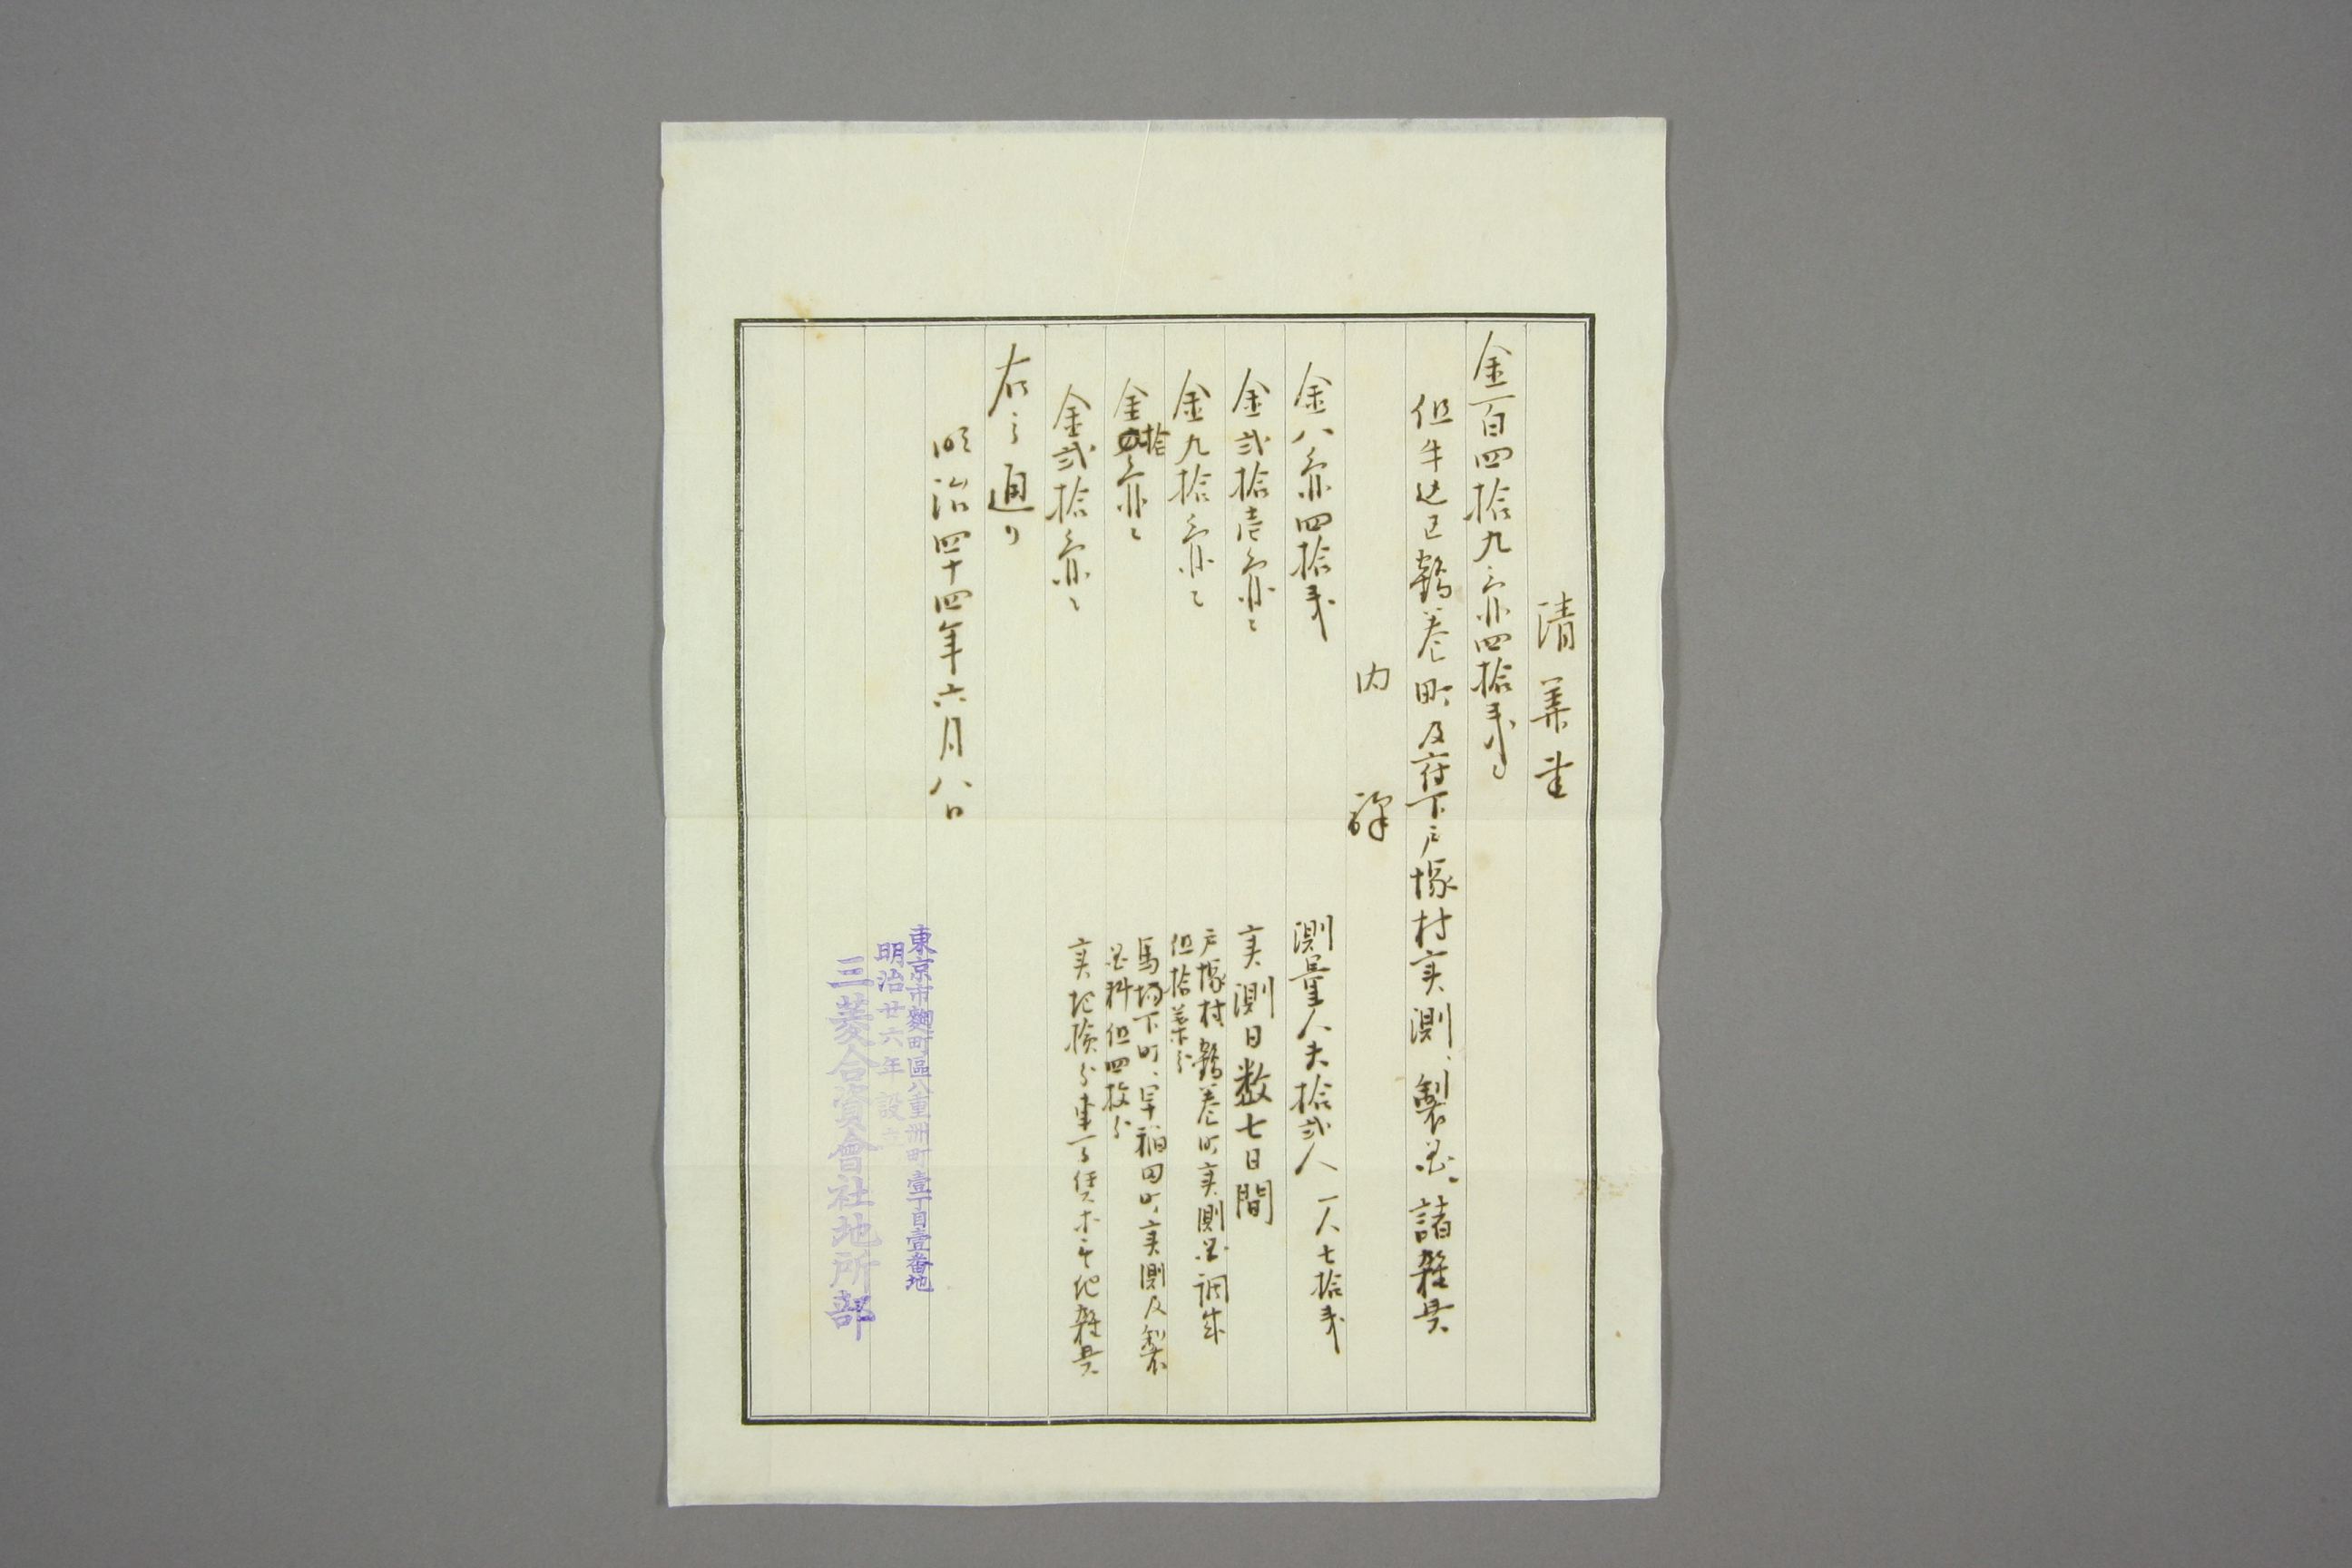 清算書
金百四拾九円四拾銭也
但牛込区鶴巻町及府下戸塚村実測、製図、諸雑費
内訳
金八円四拾銭 測量人夫拾弐人 一人七拾銭
金弐拾壱円也 実測日数七日間
金九拾円也 戸塚村鶴巻町実測図調製
但拾葉分
金拾円也 馬場下町、早稲田町実測及製
図料但四枚分
金弐拾円也 実地検分 雑費
右之通り
明治四十四年六月八日
東京市麹町區八重洲町壹丁目壹番地
明治廿六年設立
三菱合資會社地所部